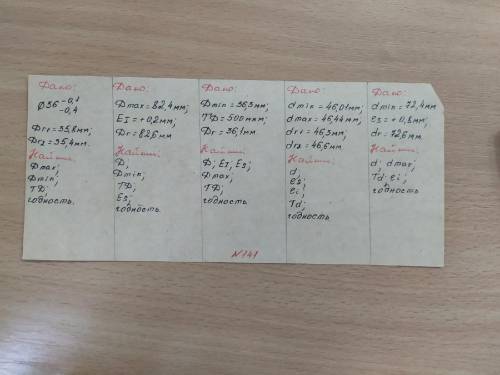 Дано:
Ø36 -0,1
-0,4
Dr1=35,8мм;
Dr2=35,4мм.
Найти:
Dmax;
Dmin;
TD;
годность.
Дано:
Dmax=82,4мм;
EI=+0,2мм;
Dr=82,6мм
Найти:
D;
Dmin;
TD;
Es;
годность.
Дано:
Dmin=36,5мм;
TD=500мкм;
Dr=36,1мм
Найти:
D; EI; Es;
Dmax;
TD;
годность.
Дано:
dmin=46,01мм;
dmax=46,44мм;
dr1=46,3мм;
dr2=46,6мм.
Найти:
d;
es;
ei;
Td;
годность
Дано:
dmin=72,4мм
es=+0,8мм;
dr=72,6мм.
Найти:
d; dmax;
Td; ei;
годность
№141